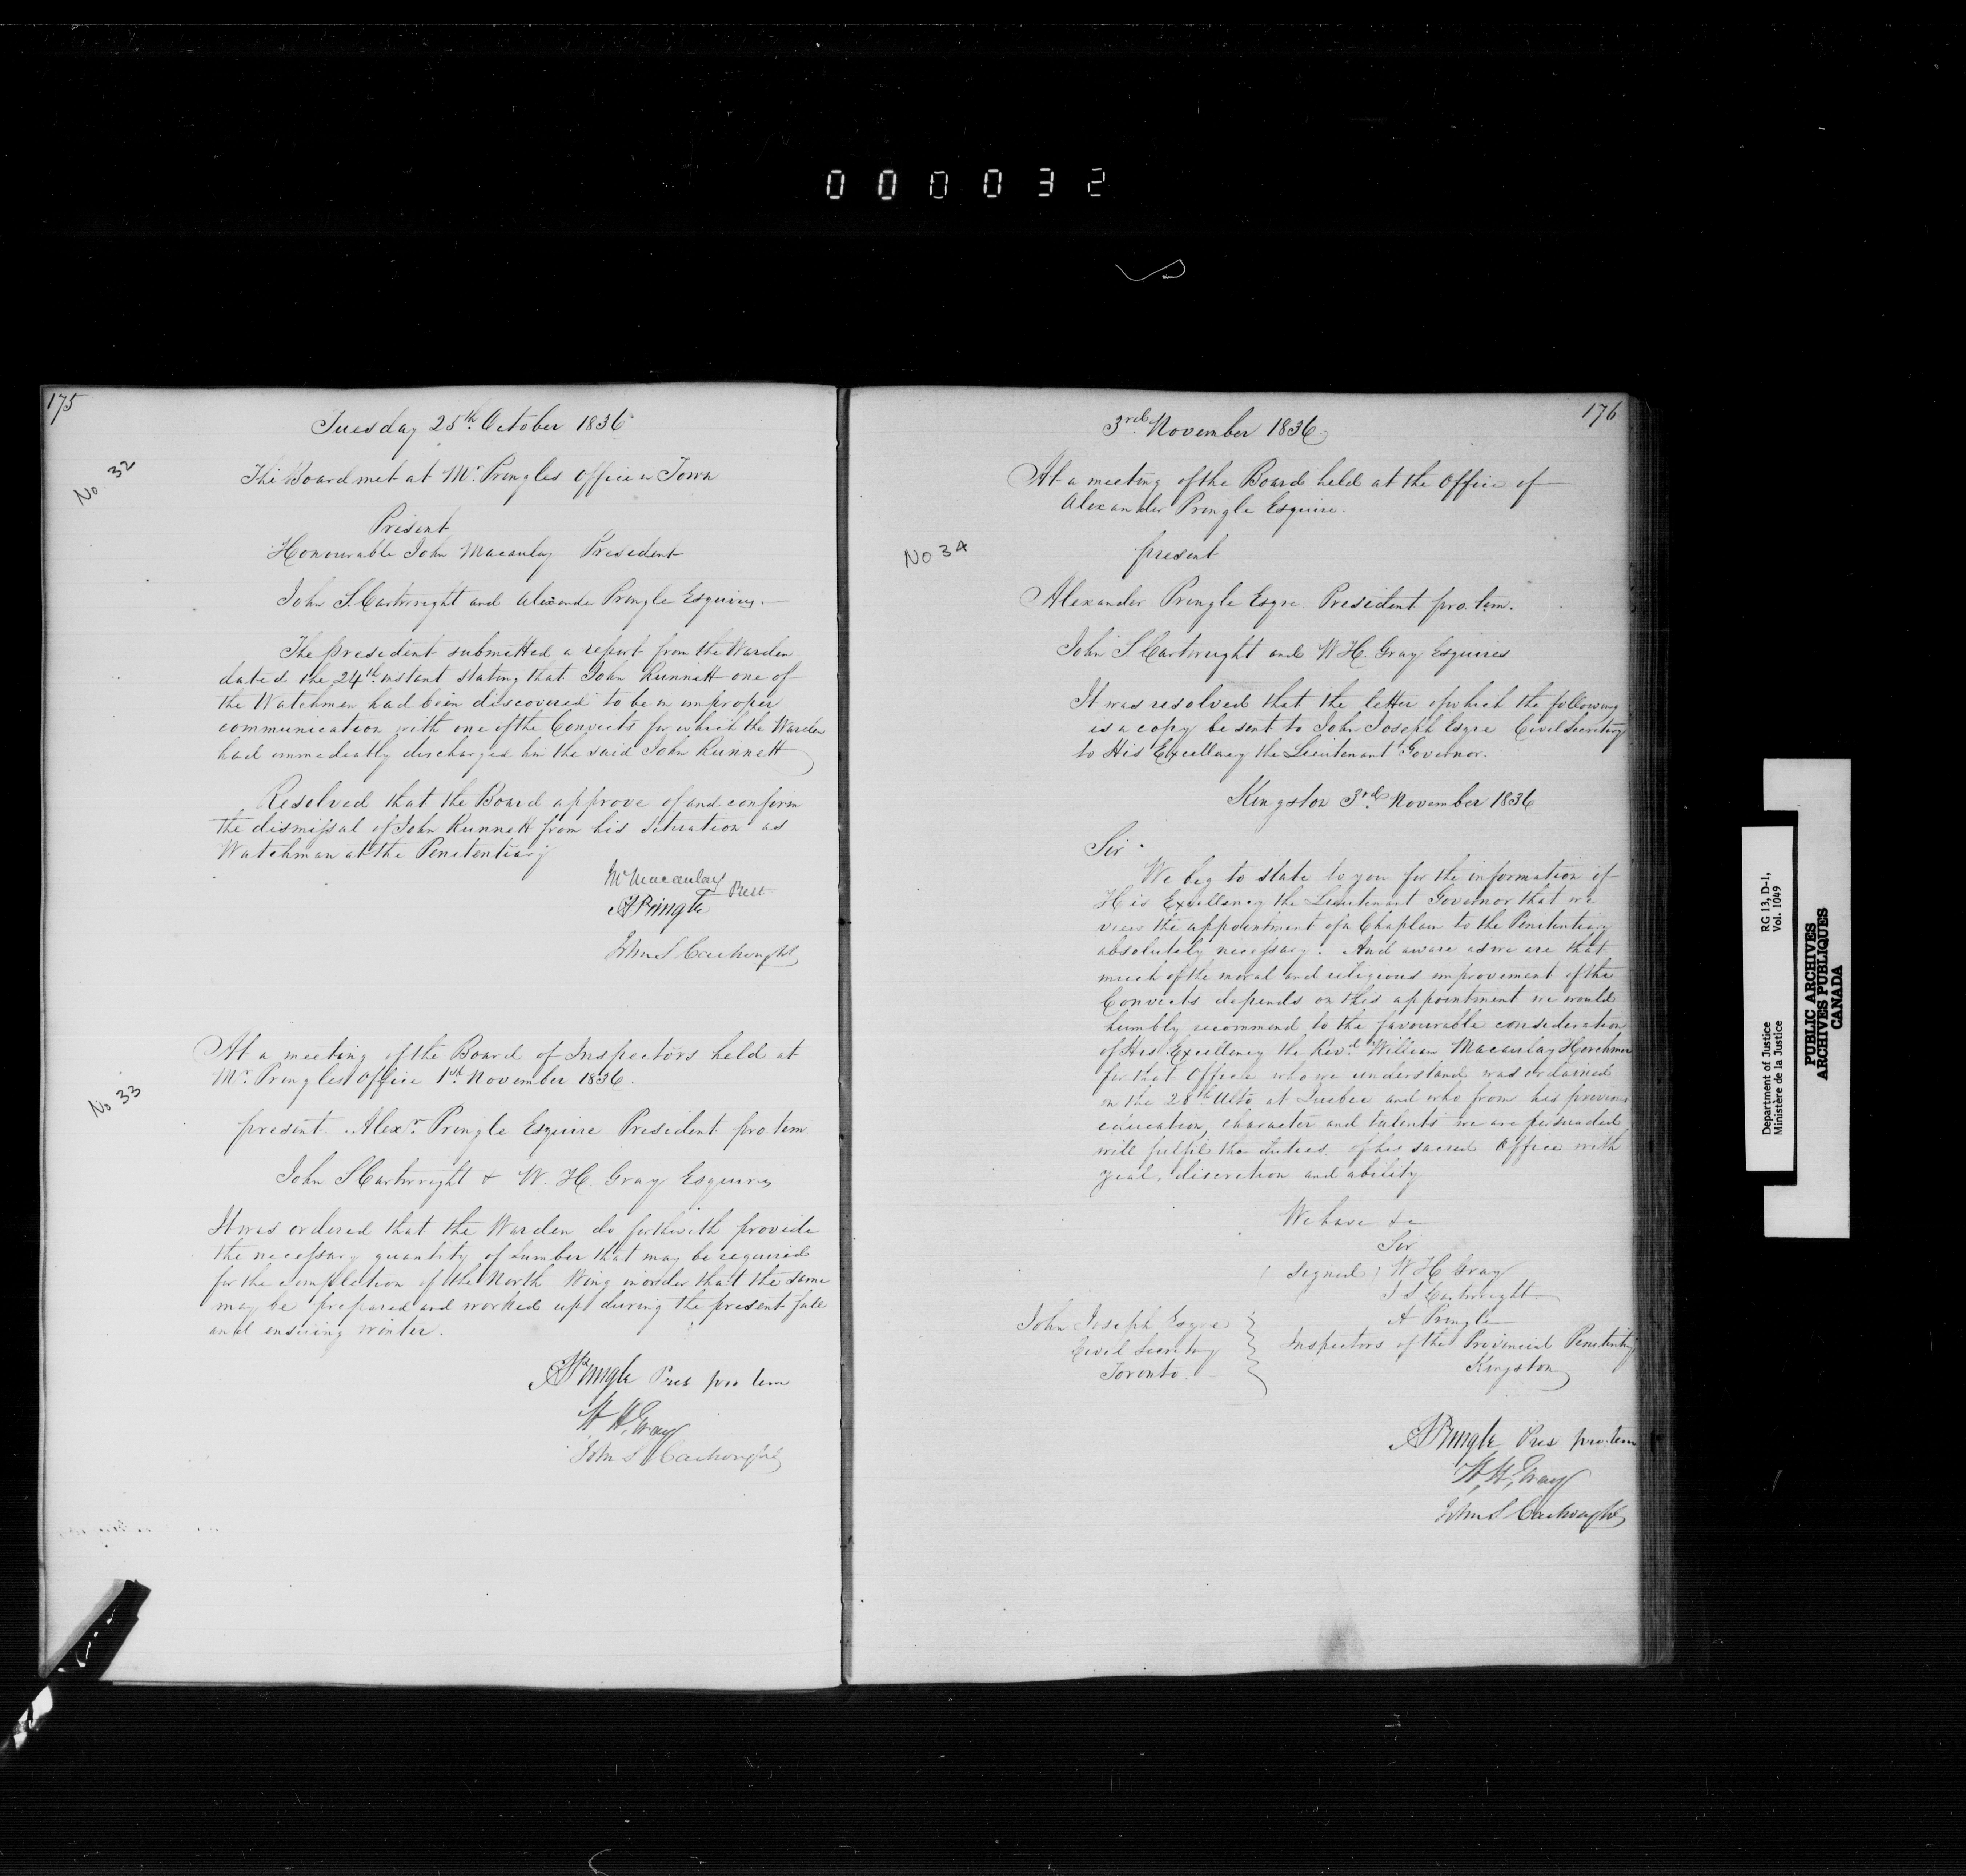 000032
175
Tuesday 25th October 1836
No 32
The Board met at Mr Pringles Office in Town
Present
Honourable John Macaulay President
John S. Cartwright and Alexander Pringle Esquires.
The president submitted a report from the Warden
dated the 24th instant stating that John Runnett one of
the Watchmen had been discovered to be in improper
communication with one of the Convicts for which the Warden
had immediatly discharged him the said John Runnett
Resolved that the Board approve of and confirm
the dismissal of John Runnett from his situation as
Watchman at the Penetentiary
Macaulay Prest
A Pringle
John S Cartwright
At a meeting of the Board of Inspectors held at
Mr Pringles Office 1st November 1836.
No 33
present. Alexr Pringle Esquire President pro. tem
John S Cartwright & W. H. Gray Esquires
It was ordered that the Warden do forthwith provide
the necessary quantity of Lumber that may be required
for the completion of the North Wing in order that the same
may be prepared and worked up during the present fall
and ensuing winter.
A Pringle Pres pro tem
W H, Gray
John S Cartwright
176
3rd November 1836.
At a meeting of the Board held at the Office of
Alexander Pringle Esquire.
No 34
present
Alexander Pringle Esqre President pro. tem.
John S. Cartwright and W. H. Gray Esquires
It was resolved that the letter of which the following
is a copy be sent to John Joseph Esqre Civil Secretary
to His Excellency the Lieutenant Governor.
Kingston 3rd November 1836
Sir
We beg to state to you for the information of
His Excellency the Lieutenant Governor that we
view the appointment of a Chaplain to the Penitentiary
absolutely necessary. And aware as we are that
much of the moral and religious improvement of the
Convicts depends on this appointment we would
humbly recommend to the favourable consideration
of His Excellency the Revd William Macaulay Herchmer
for that Office who we understand was ordained
on the 28th Ulto, at Quebec and who from his previous
education, character and talents we are persuaded
will fulfil the duties of his sacred Office with
zeal, discretion and ability
We have &c
Sir
(signed) W H Gray
J S Cartwright
A Pringle
John Joseph Esqre
Inspectors of the Provincial Penitentiary
Civil Secretary
Kingston
Toronto.
A Pringle Pres pro. tem
W, H, Gray
John S Cartwright
Department of Justice
Ministère de la Justice
RG 13, D-1,
Vol. 1049
PUBLIC ARCHIVES
ARCHIVES PUBLIQUES
CANADA